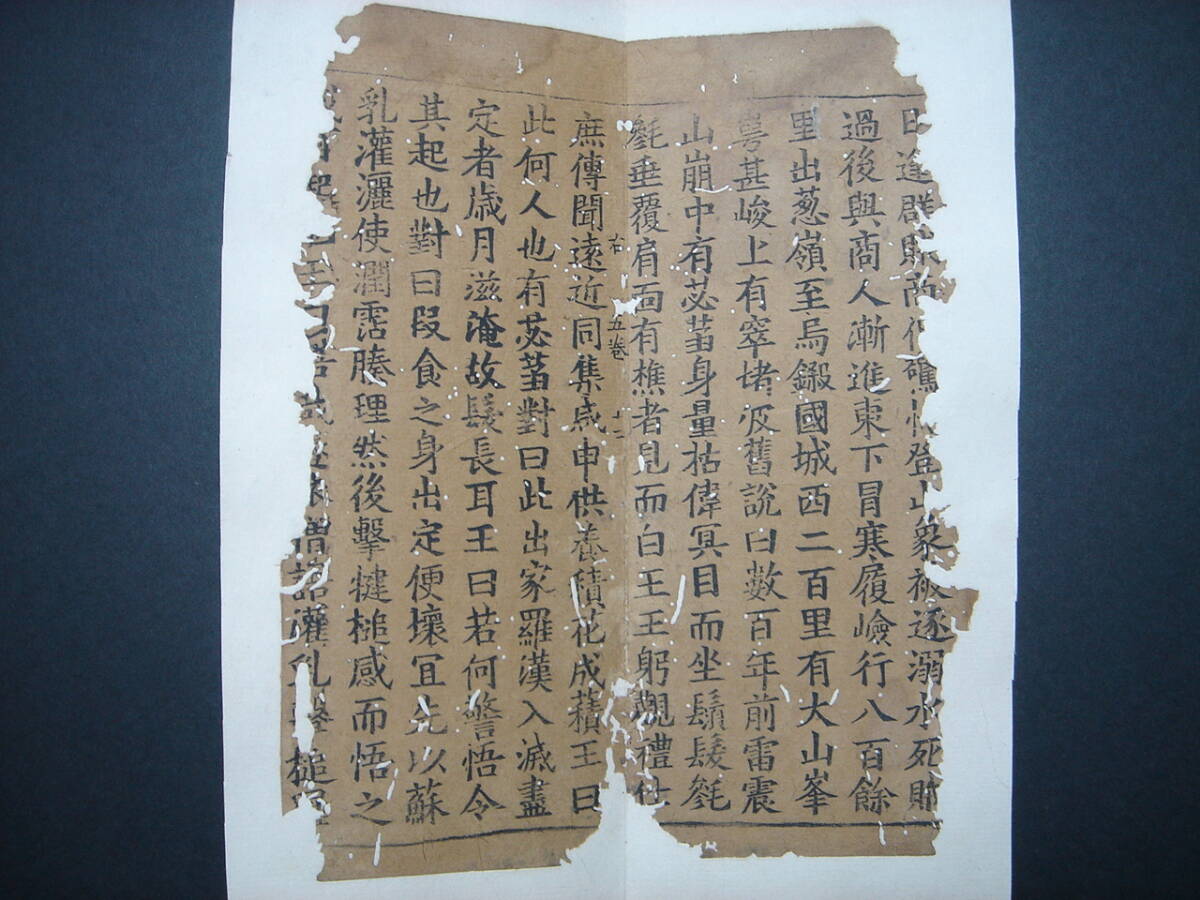 日逢群賊商侶驚怖登山象被逐溺水死賊
過後與商人漸進東下冒寒履嶮行八百餘
里出葱嶺至烏鎩國城西二百里有大山峯
崿甚峻上有窣堵波舊說曰數百年前雷震
山崩中有苾蒭身量枯偉冥目而坐鬚髮毿
毿垂覆肩面有樵者見而白王王躬觀禮仕
右 五卷 十二
庶傳聞遠近同集咸申供養積花成𧂐王曰
此何人也有苾蒭對曰此出家羅漢入滅盡
定者歲月滋淹故髮長耳王曰若何警悟令
其起也對曰段食之身出定便壞宜先以蘇
乳灌灑使潤霑腠理然後擊犍槌感而悟之
王曰 僧語灌乳擊槌